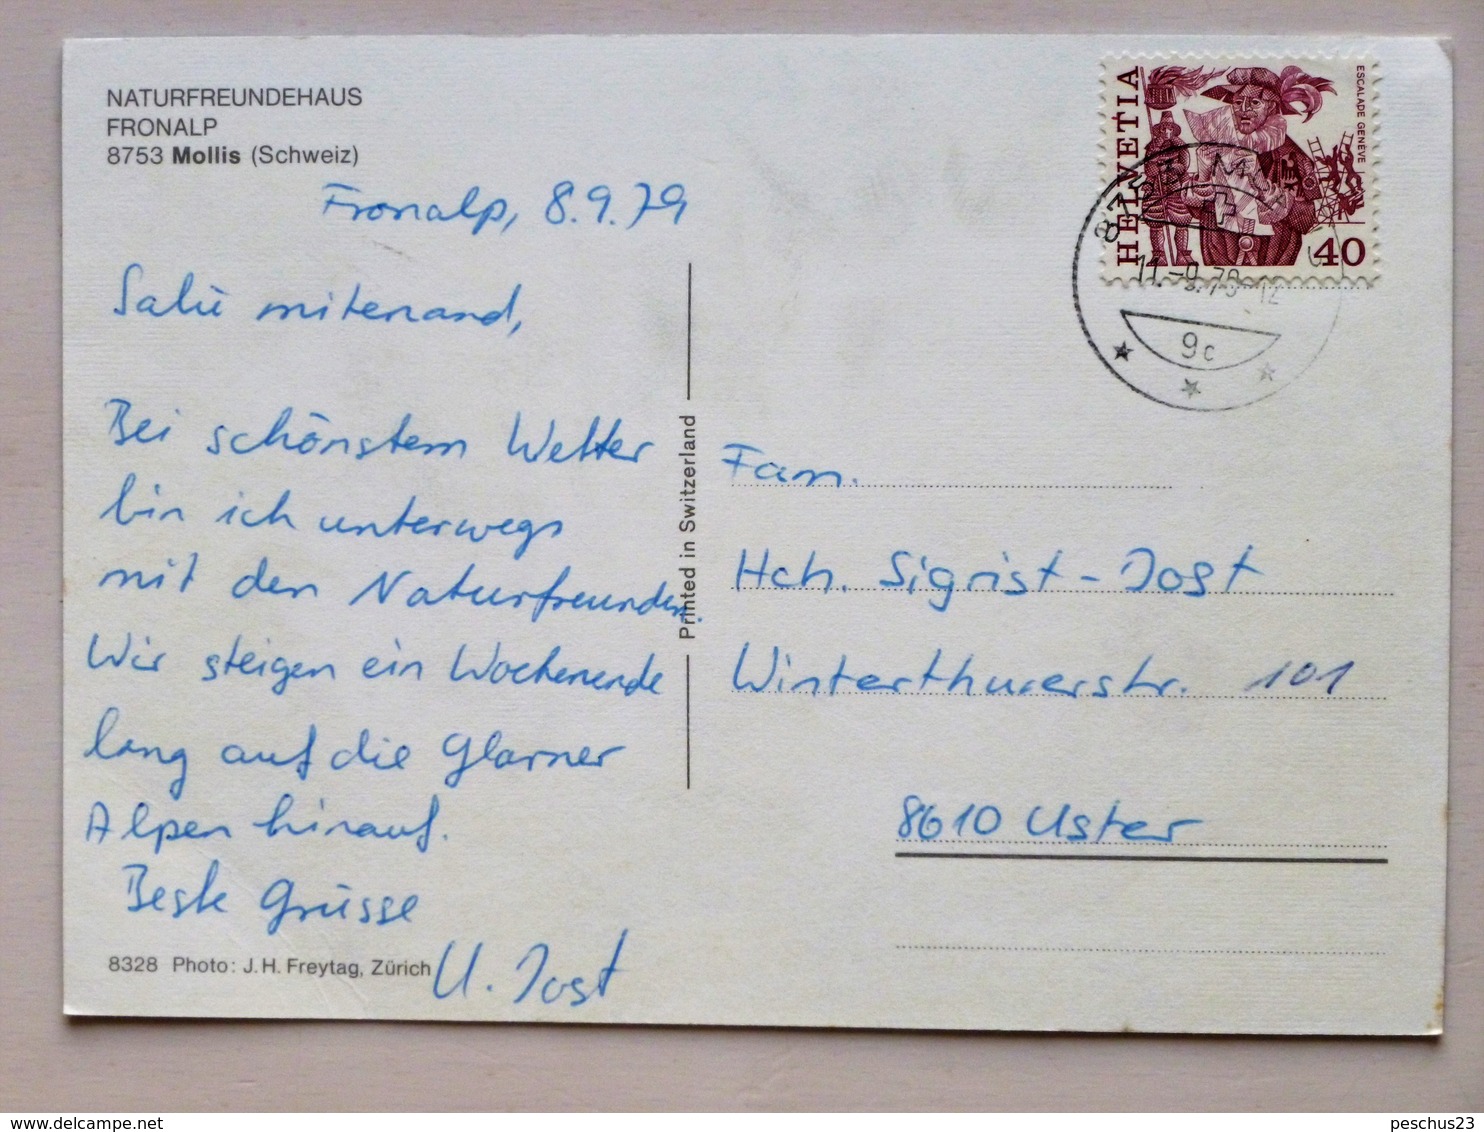 NATURFREUNDEHAUS
FRONALP
8753 Mollis (Schweiz)
Fronalp, 8.9.79
Salü mitenand,
Bei schönstem Wetter
bin ich unterwegs
mit den Naturfreunden.
Wir steigen ein Wochenende
lang auf die Glarner
Alpen hinauf.
Beste Grüsse
U. Jost
8328 Photo: J.H. Freytag, Zürich
Printed in Switzerland
HELVETIA
ESCALADE GENEVE
40
11.-9.79-12
9c
Fam.
Hch. Sigrist-Jost
Winterthurerstr. 101
8610 Uster
peschus23